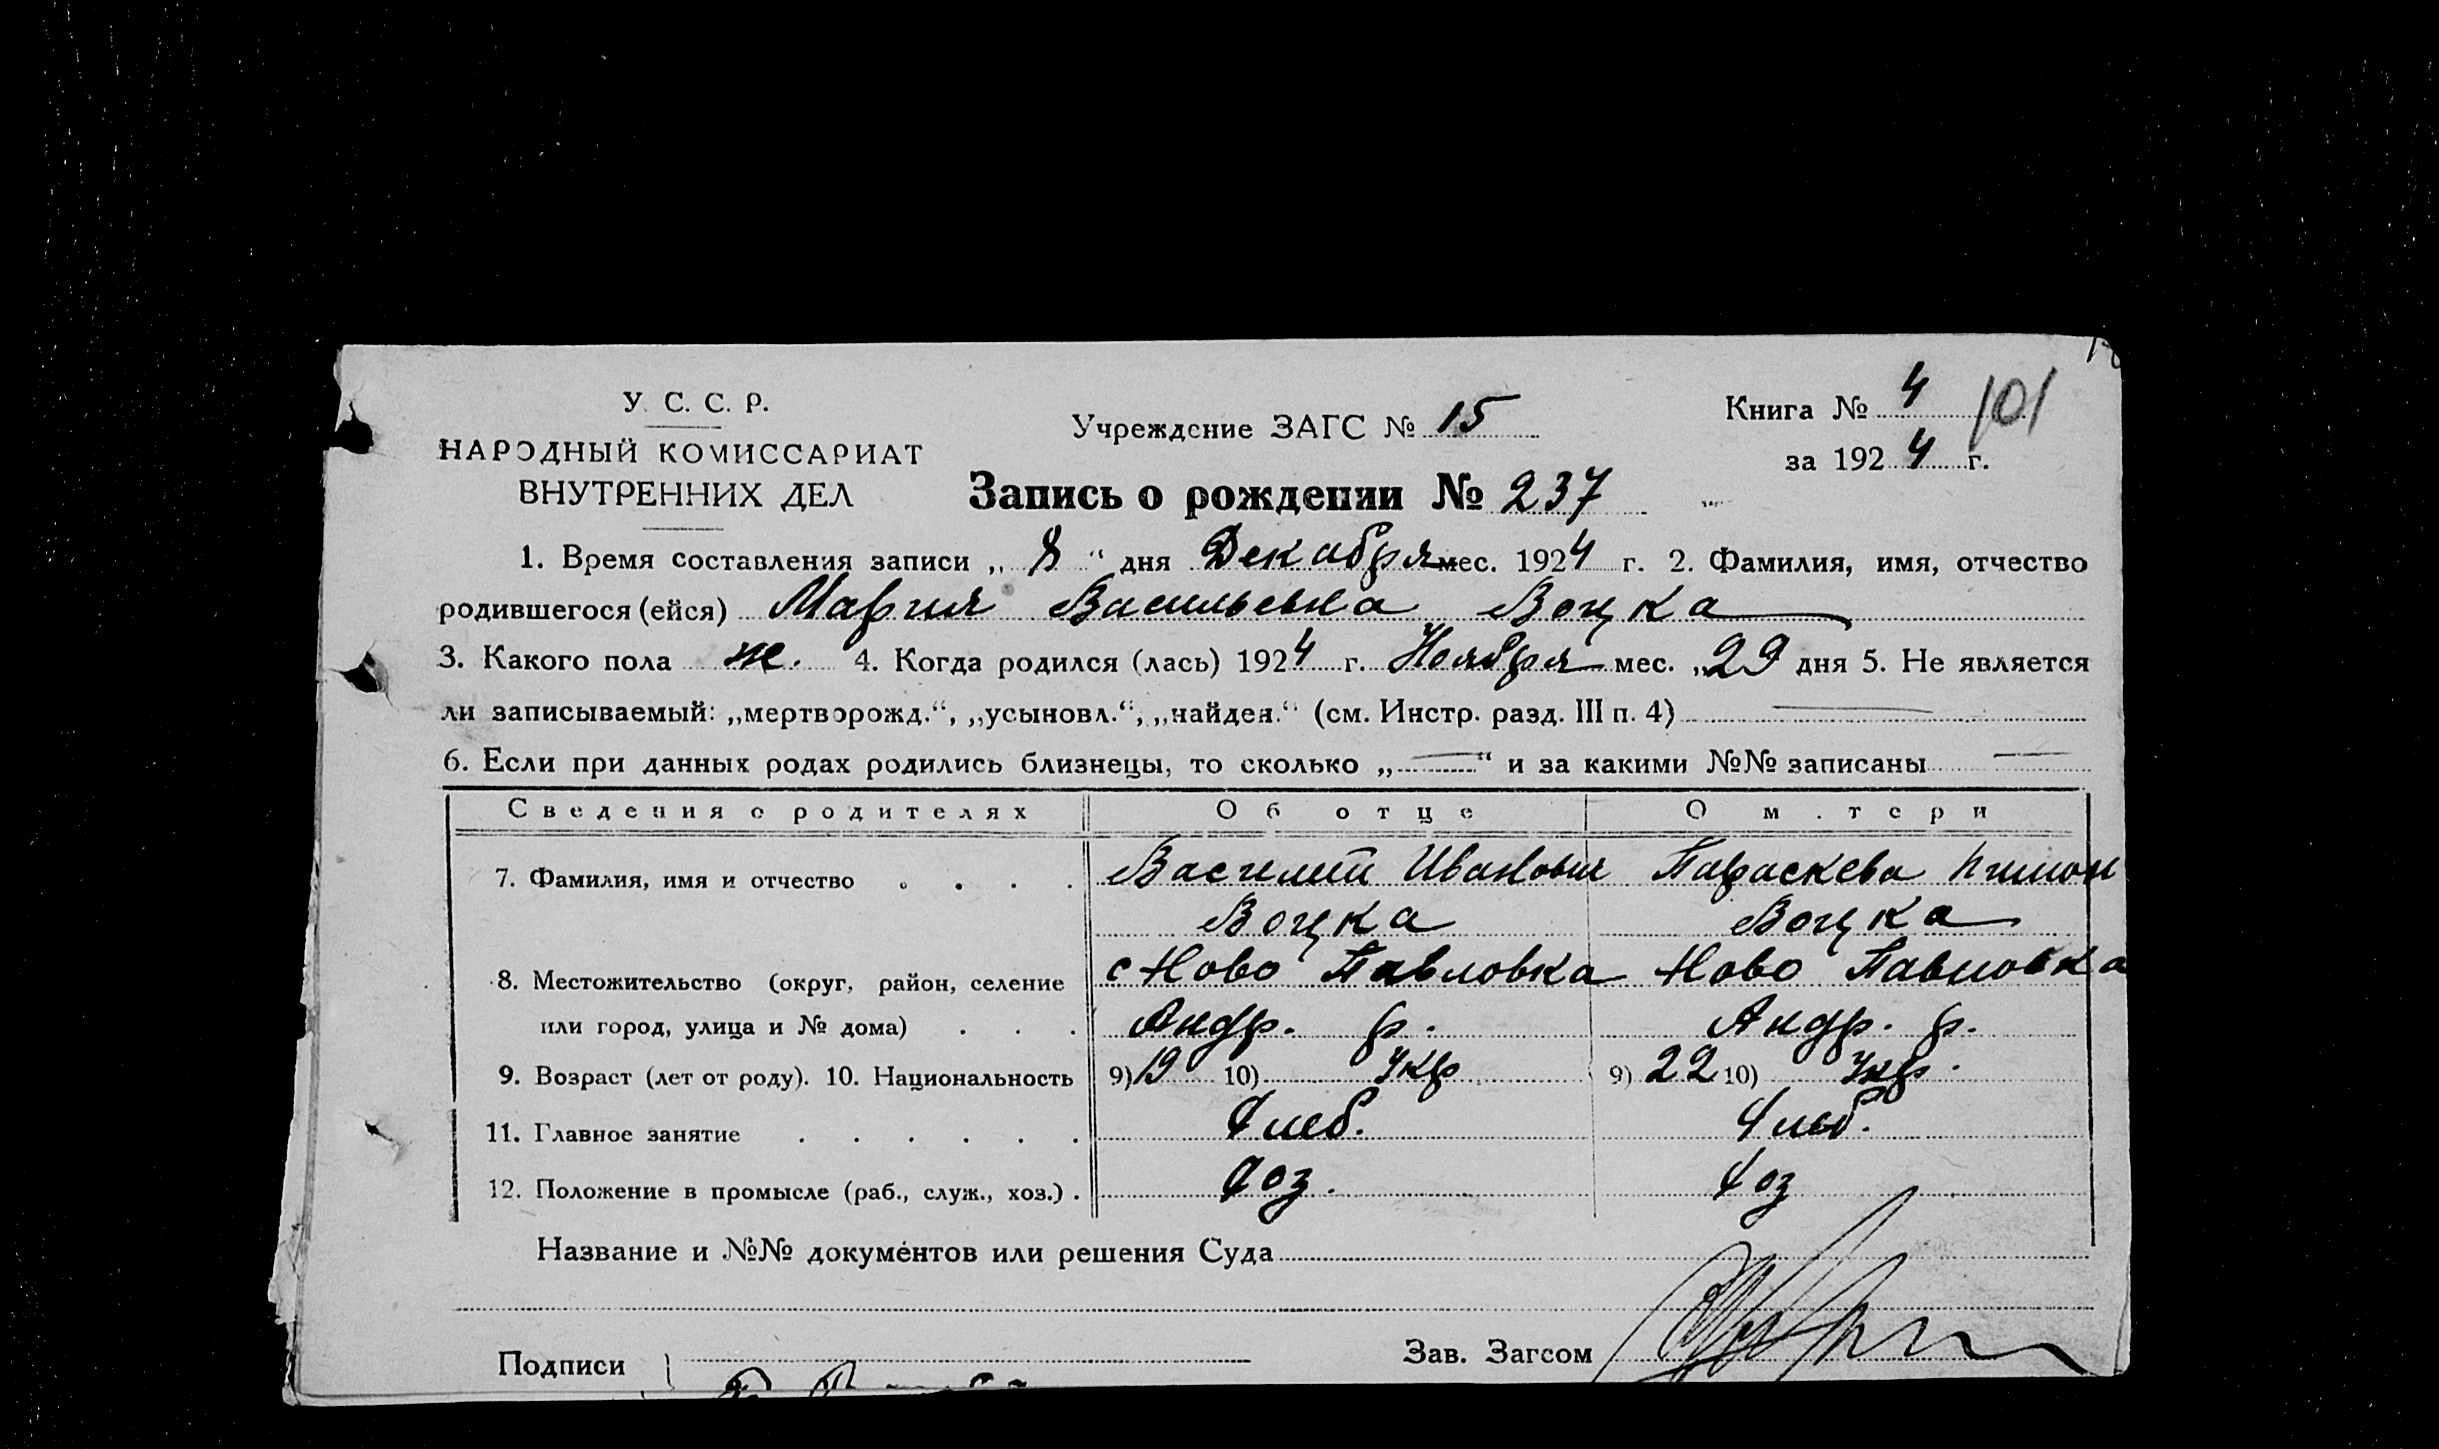 У. С. С. Р.
НАРОДНЫЙ КОМИССАРИАТ
ВНУТРЕННИХ ДЕЛ
Учреждение ЗАГС № 15
Книга № 4 101
за 1924 г.
Запись о рождении № 237
1. Время составления записи „ 8 “ дня Декабря мес. 1924 г. 2. Фамилия, имя, отчество
родившегося (ейся) Мария Васильевна Воцка
3. Какого пола ж. 4. Когда родился (лась) 1924 г. Ноября мес. „29 дня 5. Не является
ли записываемый: „мертворожд.“, „усыновл.“, „найден.“ (см. Инстр. разд. III п. 4) —
6. Если при данных родах родились близнецы, то сколько „—“ и за какими №№ записаны —
Сведения о родителях Об отце О м.тери
7. Фамилия, имя и отчество . . . . Василий Иванович Параскева
Воцка Воцка
8. Местожительство (округ, район, селение с Ново Павловка Ново Павловка
или город, улица и № дома) . . . Андр. р. Андр. р.
9. Возраст (лет от роду). 10. Национальность 9) 19 10) Укр 9) 22 10) Укр.
11. Главное занятие . . . . . . Хлеб. Хлеб.
12. Положение в промысле (раб., служ., хоз.) . Хоз. Хоз
Название и №№ документов или решения Суда
Подписи Зав. Загсом